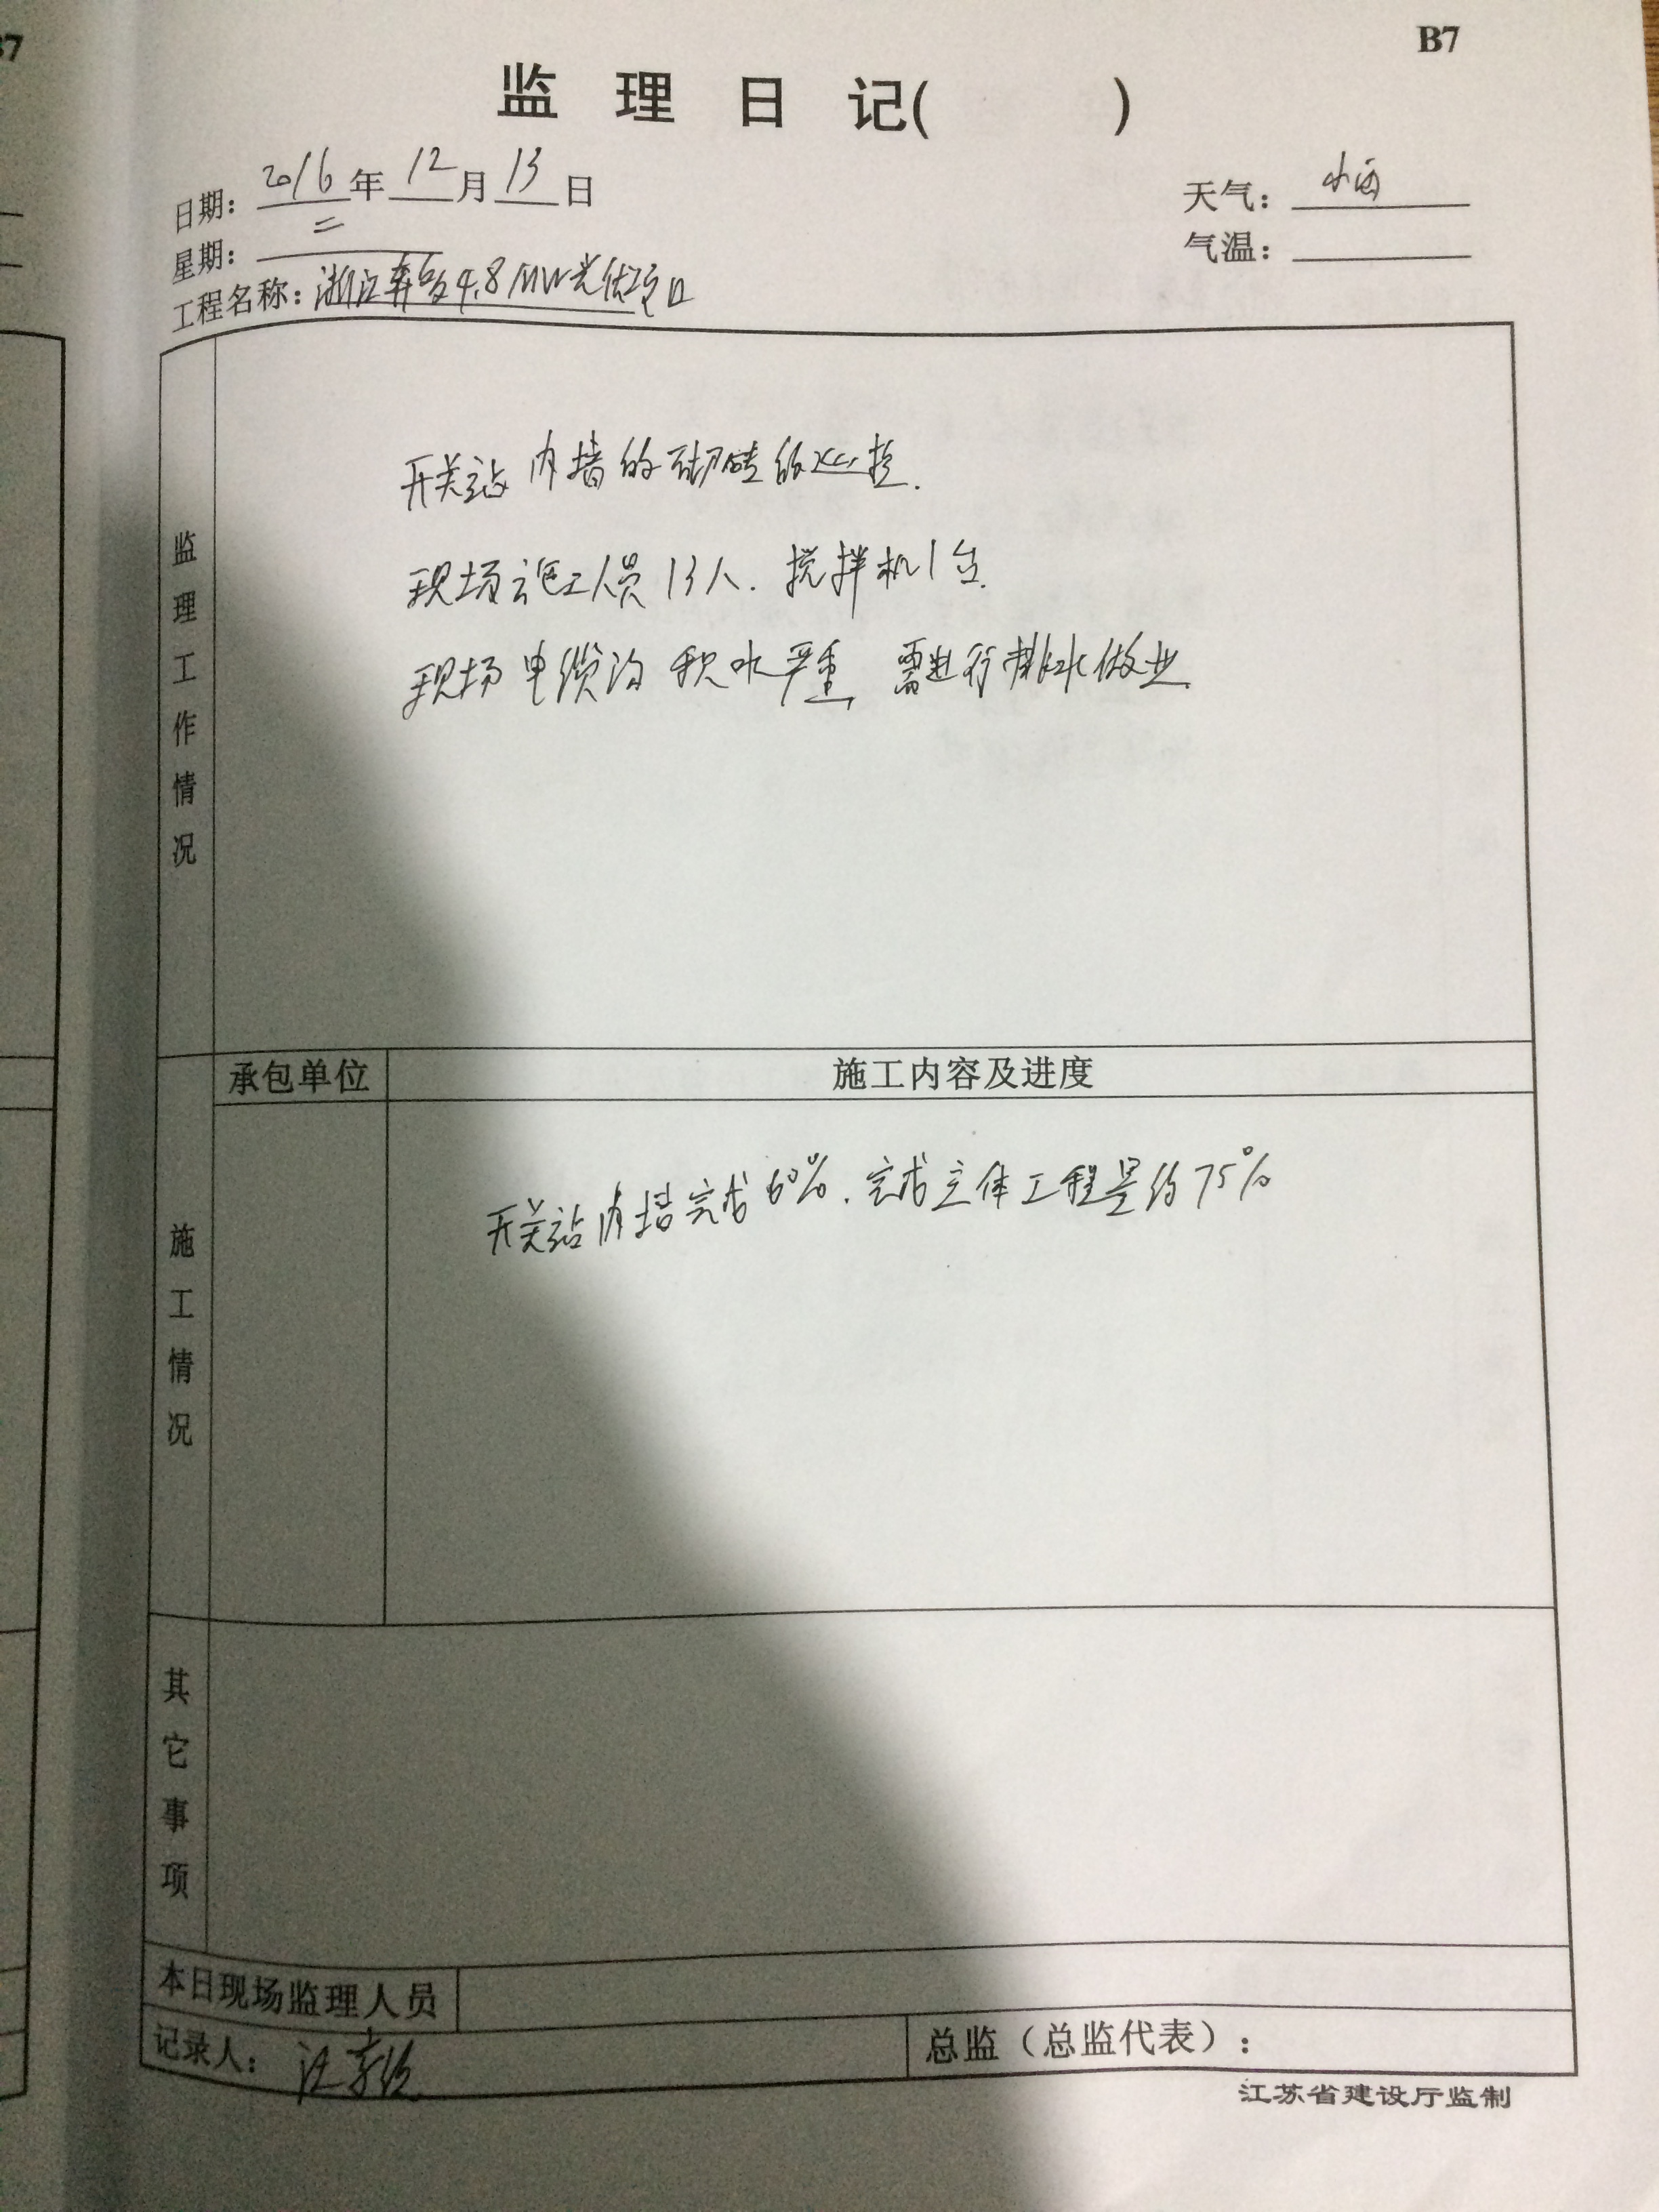 B7
B7
监理日记(　　)
日期: 2016年12月13日
天气: 小雨
星期: 二
气温:
工程名称: 浙江4.8MW光伏项目
监理工作情况
开关站内墙的砌砖的巡检.
现场施工人员13人. 搅拌机1台.
现场电缆沟积水严重, 需进行排水做业.
承包单位
施工内容及进度
施工情况
开关站内墙完成60%. 完成主体工程量约75%
其它事项
本日现场监理人员
记录人: 汪
总监（总监代表）:
江苏省建设厅监制